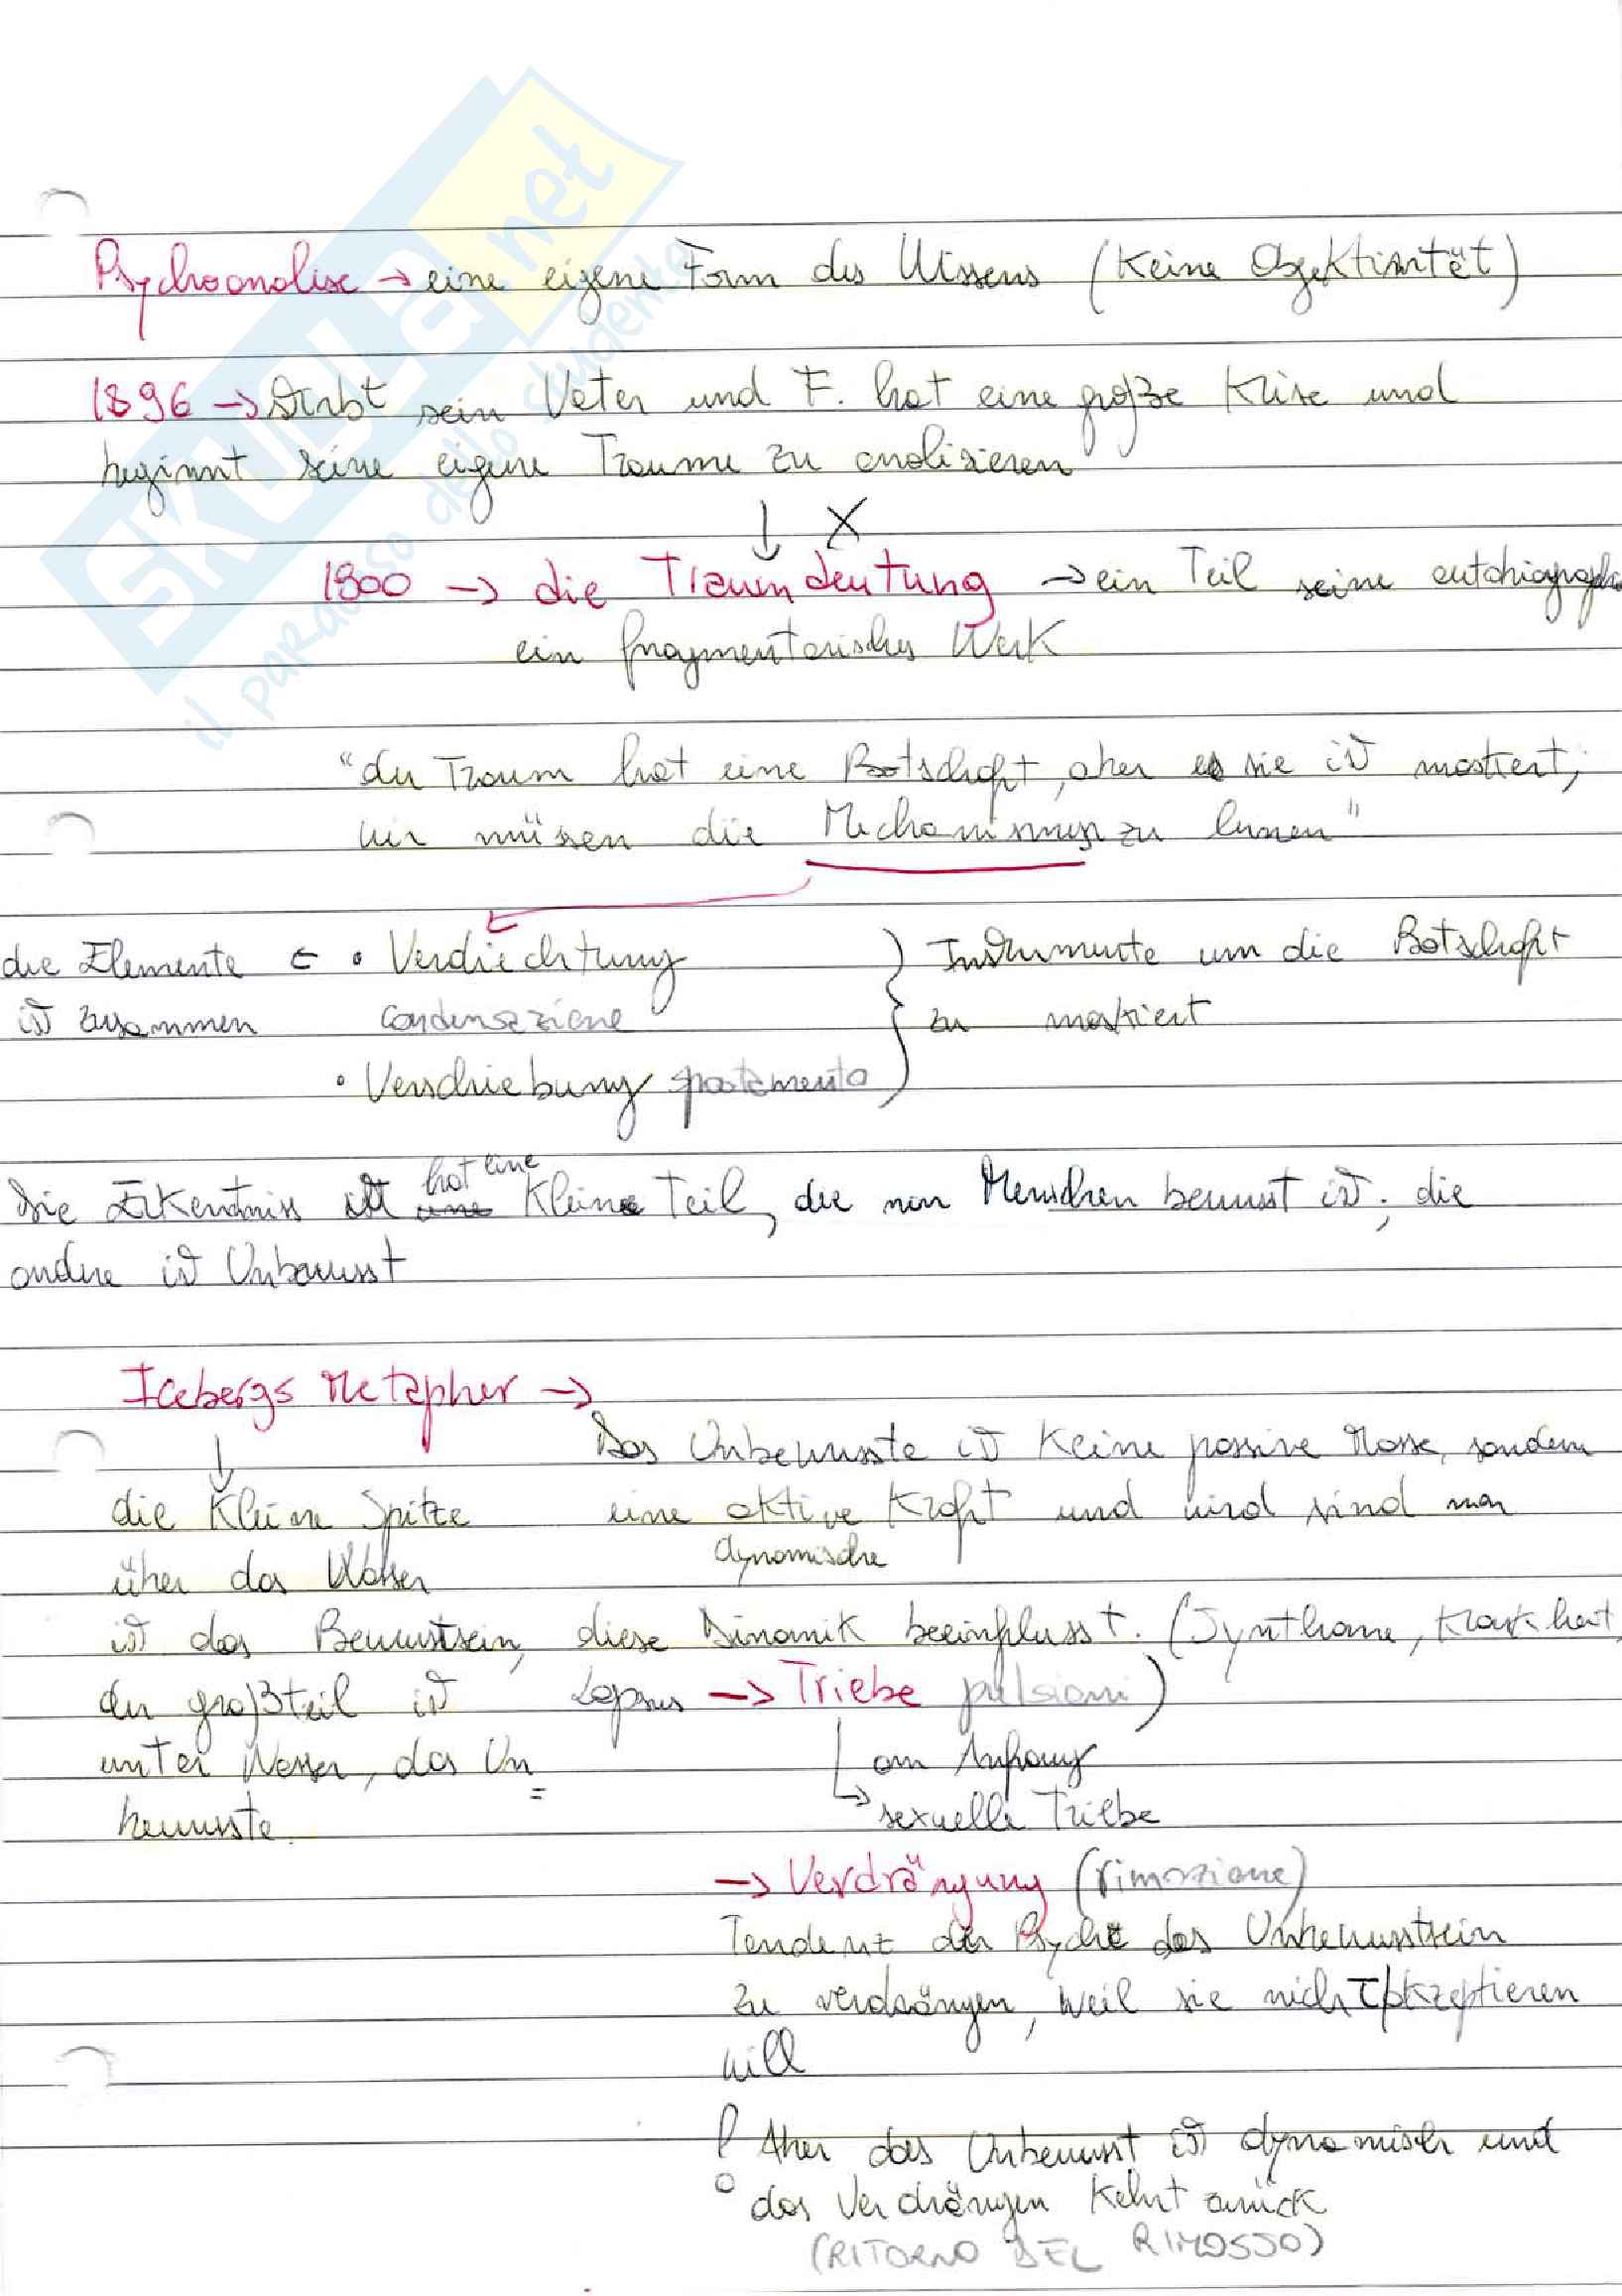 SKUOLA.net
il paradiso dello studente
Psychoanalise → eine eigene Form des Wissens (Keine Objektivität)
1896 → Stirbt sein Vater und F. hat eine große Krise und
beginnt seine eigene Traume zu analisieren
↓ X
1900 → die Traumdeutung → ein Teil seine autobiographie
ein fragmentarisches Werk
"der Traum hat eine Botschaft, aber es sie ist maskiert,
wir müssen die Mechanismus zu lernen"
die Elemente ← • Verdiechtung } Instrumente um die Botschaft
ist zusammen condensazione zu maskiert
• Verschiebung spostamento
hat eine
Die Erkentniss ist eine Kleine Teil, die man Menschen bewusst ist; die
andere ist Unbewusst
Icebergs Metapher →
↓
die Kleine Spitze
über das Wasser
ist das Bewusstsein,
der großteil ist
unter Wasser, das Un=
bewusste.
Das Unbewusste ist Keine passive Masse, sondern
eine aktive Kraft und wird sind man
dynamische
diese Dinamik beeinflusst. (Synthome, Krankheit,
Lapsus → Triebe pulsioni)
am Anfang
→ sexuelle Triebe
→ Verdrängung (rimozione)
Tendenz der Psyche das Unbewusstsein
zu verdrängen, weil sie nicht akzeptieren
will
! Aber das Unbewusst ist dynamisch und
das Verdrängen Kehrt zurück
(RITORNO DEL RIMOSSO)